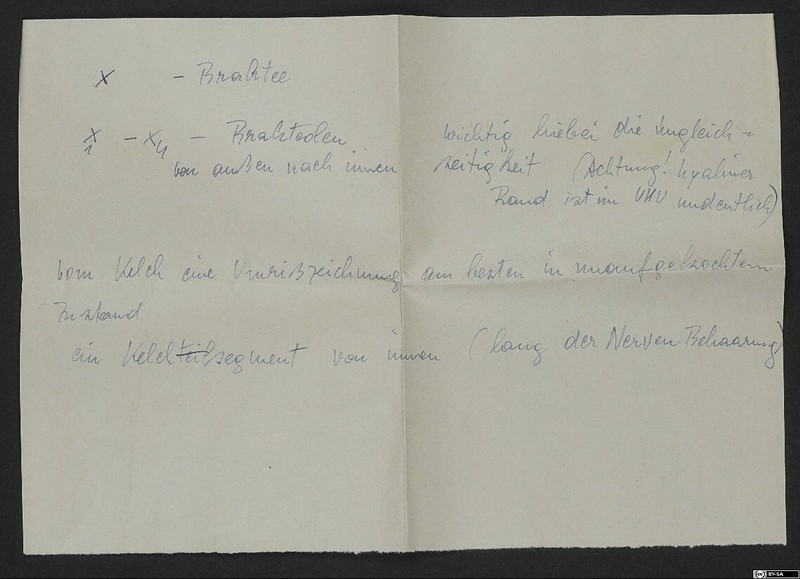 x – Braktee
x1 – x4 – Brakteolen
von außen nach innen
wichtig hiebei die Ungleich=
seitigkeit (Achtung! hyaliner
Rand ist im VHU undeutlich)
vom Kelch eine Umrißzeichnung am besten in unaufgekochtem
Zustand
ein Kelchteilsegment von innen (lang der Nerven Behaarung)
BY-SA